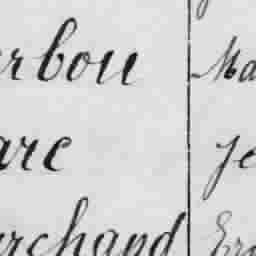 rbou Ma
arc Je
rchand Er